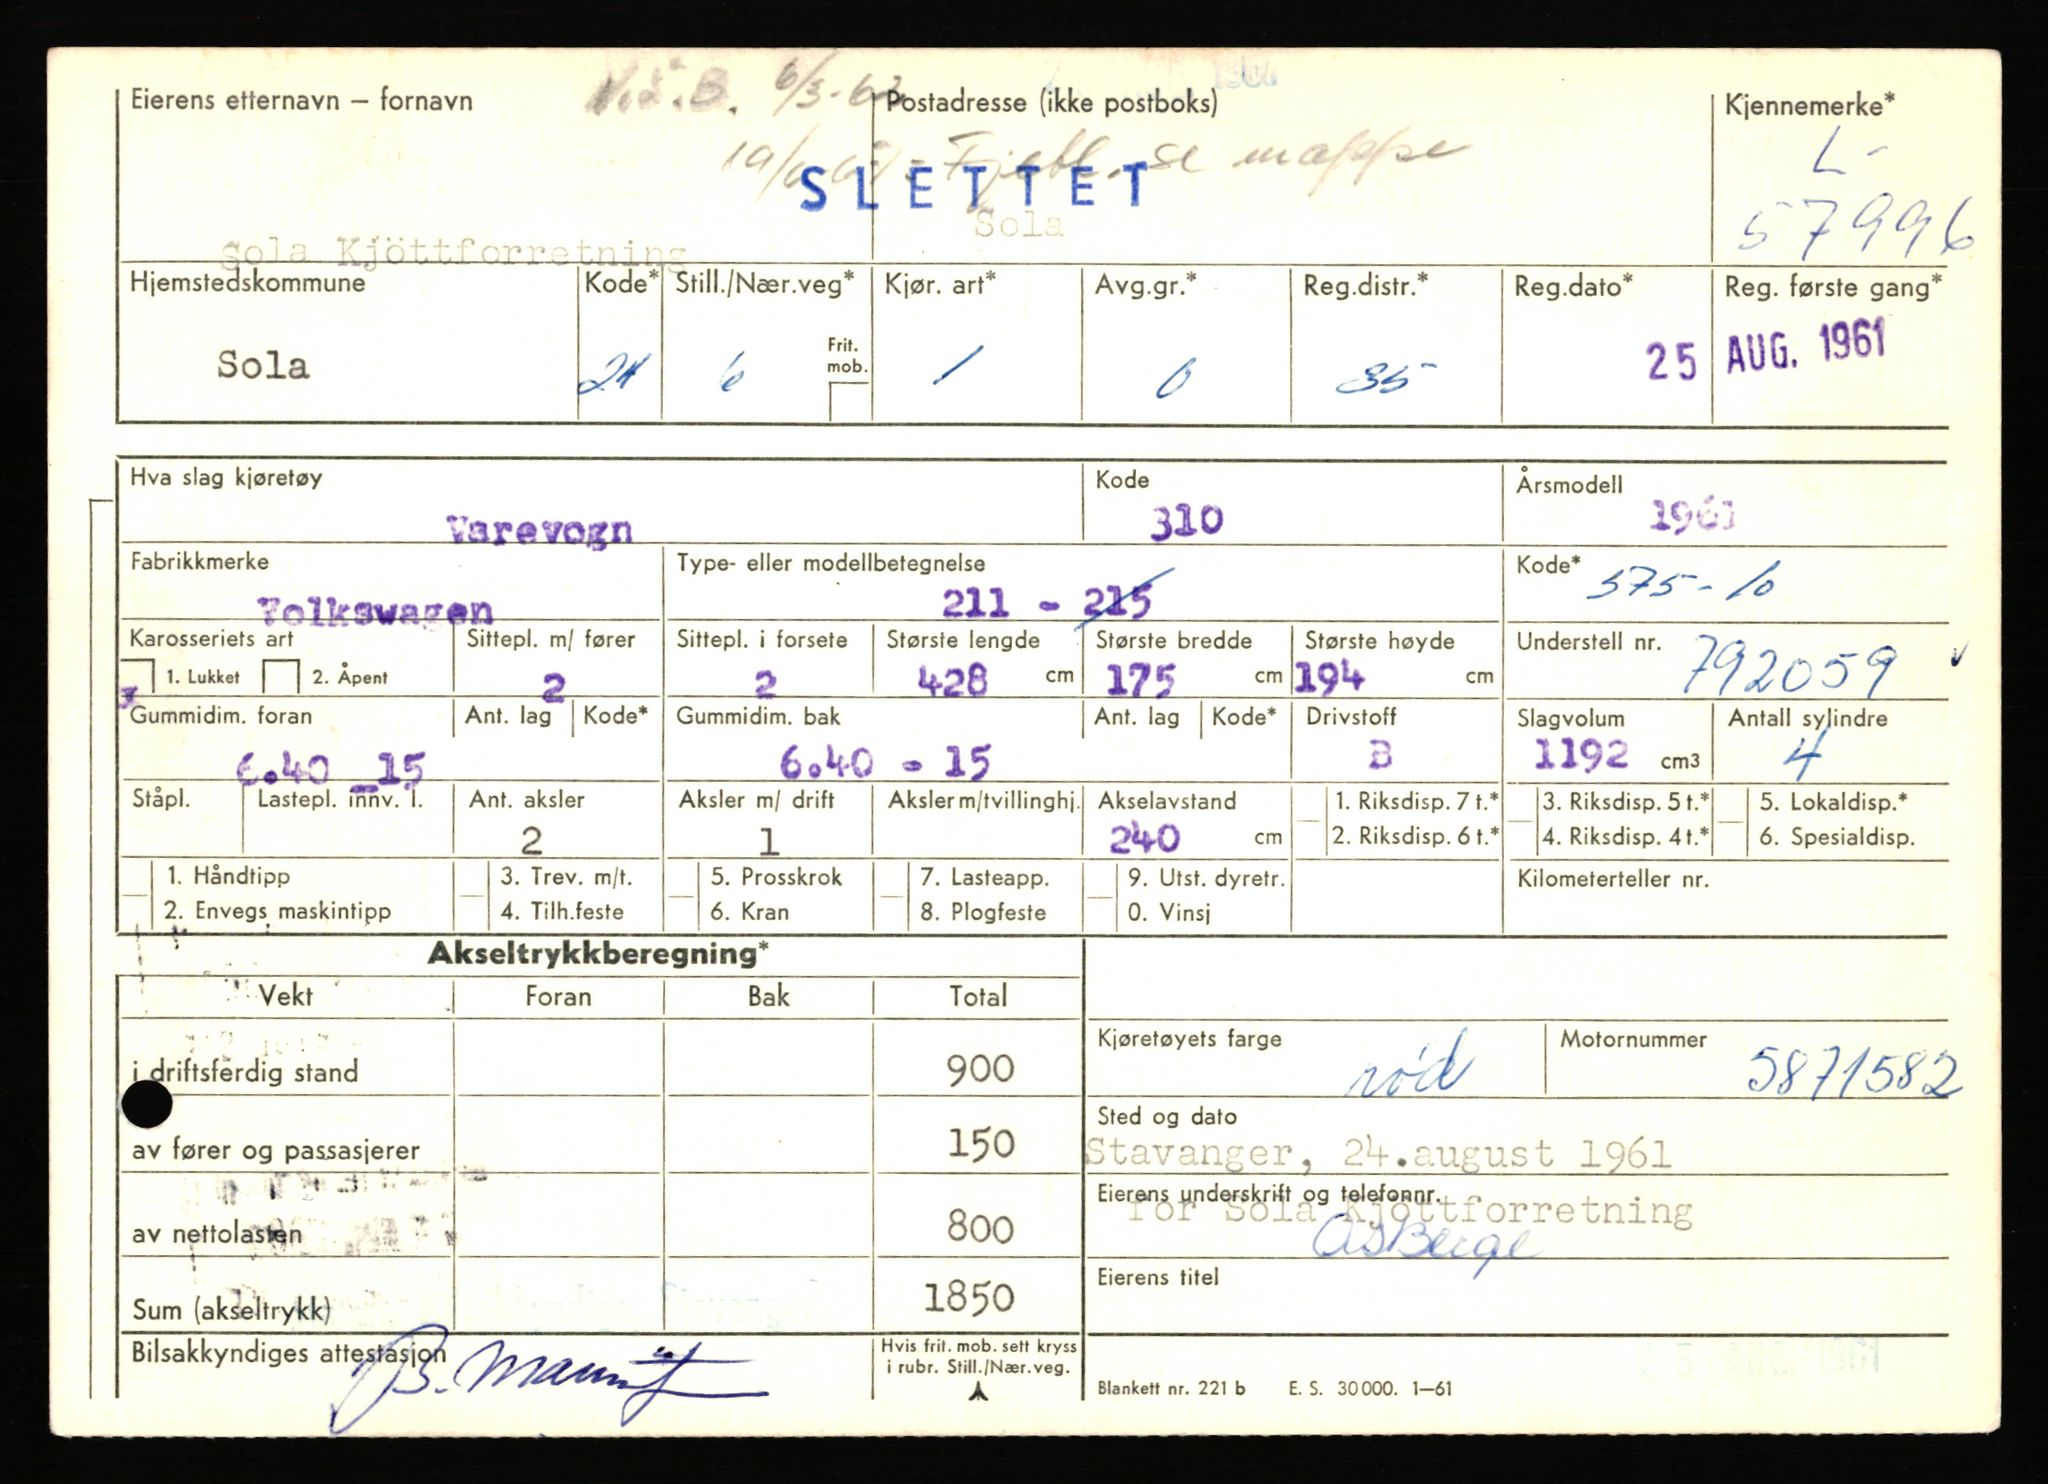 Eierens etternavn – fornavn
Postadresse (ikke postboks)
Kjennemerke*
se mappe
L-
57996
SLETTET
Sola Kjöttforretning
Sola
Hjemstedskommune
Kode*
Still./Nær.veg*
Kjør. art*
Avg.gr.*
Reg.distr.*
Reg.dato*
Reg. første gang*
Sola
24
6
Frit. mob.
1
0
35
25 AUG. 1961
Hva slag kjøretøy
Kode
Årsmodell
Varevogn
310
1961
Fabrikkmerke
Type- eller modellbetegnelse
Kode*
Volkswagen
211 - 215
575-10
Karosseriets art
Sittepl. m/ fører
Sittepl. i forsete
Største lengde
Største bredde
Største høyde
Understell nr.
x 1. Lukket
2. Åpent
2
2
428 cm
175 cm
194 cm
792059
Gummidim. foran
Ant. lag
Kode*
Gummidim. bak
Ant. lag
Kode*
Drivstoff
Slagvolum
Antall sylindre
6.40 - 15
6.40 - 15
B
1192 cm3
4
Ståpl.
Lastepl. innv. l.
Ant. aksler
Aksler m/ drift
Aksler m/tvillinghj.
Akselavstand
1. Riksdisp. 7 t.*
3. Riksdisp. 5 t.*
5. Lokaldisp.*
2
1
240 cm
2. Riksdisp. 6 t.*
4. Riksdisp. 4 t.*
6. Spesialdisp.
1. Håndtipp
3. Trev. m/t.
5. Prosskrok
7. Lasteapp.
9. Utst. dyretr.
Kilometerteller nr.
2. Envegs maskintipp
4. Tilh.feste
6. Kran
8. Plogfeste
0. Vinsj
Akseltrykkberegning*
Vekt
Foran
Bak
Total
i driftsferdig stand
900
av fører og passasjerer
150
av nettolasten
800
Sum (akseltrykk)
1850
Bilsakkyndiges attestasjon
Hvis frit. mob. sett kryss
i rubr. Still./Nær.veg.
Kjøretøyets farge
rød
Motornummer
5871582
Sted og dato
Stavanger, 24.august 1961
Eierens underskrift og telefonnr.
for Sola Kjöttforretning
Eierens titel
Blankett nr. 221 b E. S. 30000. 1–61